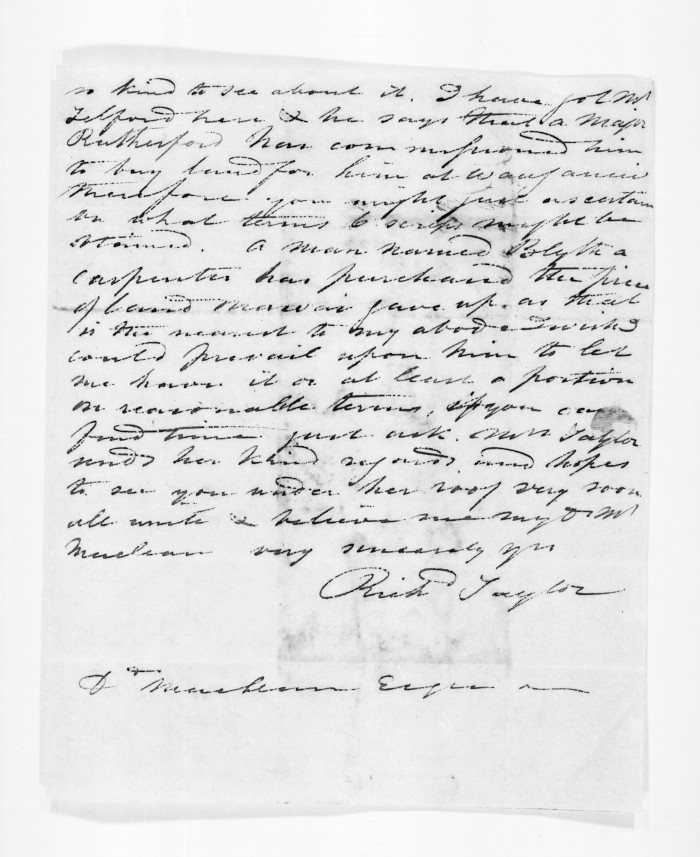 so kind to see about it. I have got Mr
Telford here & he says that a Major
Rutherford has commissioned him
to buy land for him at Wanganui
therefore you might just ascertain
on what terms 6 scrips might be
obtained. A man named Blyth a
carpenter has purchased the piece
of land Mawai gave up as that
is the nearest to my abode I wish I
could prevail upon him to let
me have it or at least a portion
on reasonable terms, if you can
find time just ask. Mrs Taylor
sends her kind regards and hopes
to see you under her roof very soon
all unite & believe me my Dr Mr
Maclean very sincerely yrs
Richd Taylor
D. Maclean Esqre